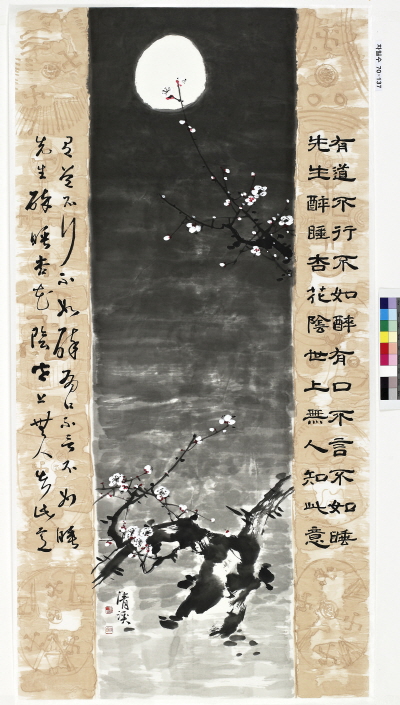 有道不行不如醉有口不言不如睡
先生醉睡杏花陰世上無人知此意
有道不行不如醉有口不言不如睡
先生醉睡杏花陰世上無人知此意
清溪
70-137